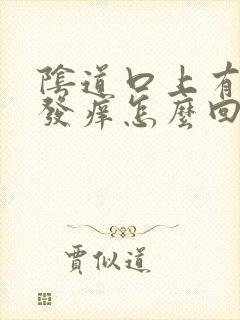 陰道口上有
發癢怎麼回
賈似道